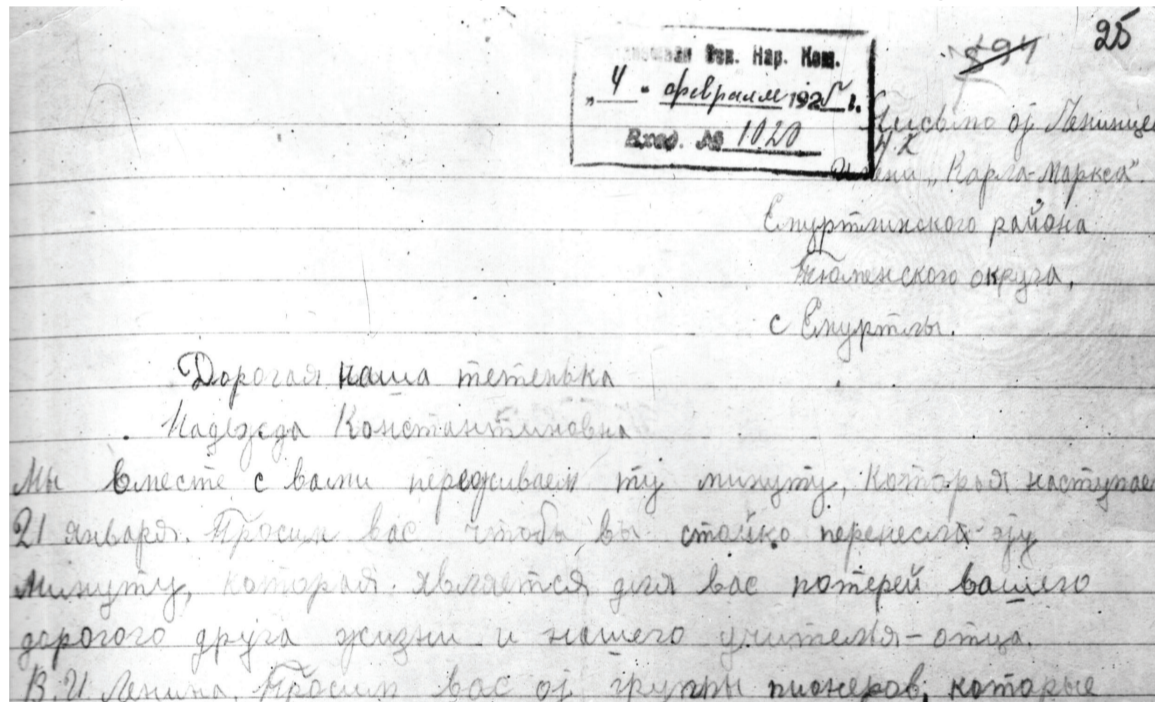 25
894
Нар. Ком.
„4" февраля 1925 г.
Вход. № 1020
Письмо от Ленинцев
имени „Карла-Маркса".
Емуртлинского района
Тюменского округа,
с Емуртлы.
Дорогая наша тетенька
Надежда Константиновна
Мы вместе с вами переживаем ту минуту, которая наступае
21 января. Просим вас чтобы вы стойко перенесли эту
минуту, которая является для вас потерей вашего
дорогого друга жизни и нашего учителя-отца.
В.И Ленина. Просим вас от группы пионеров, которые